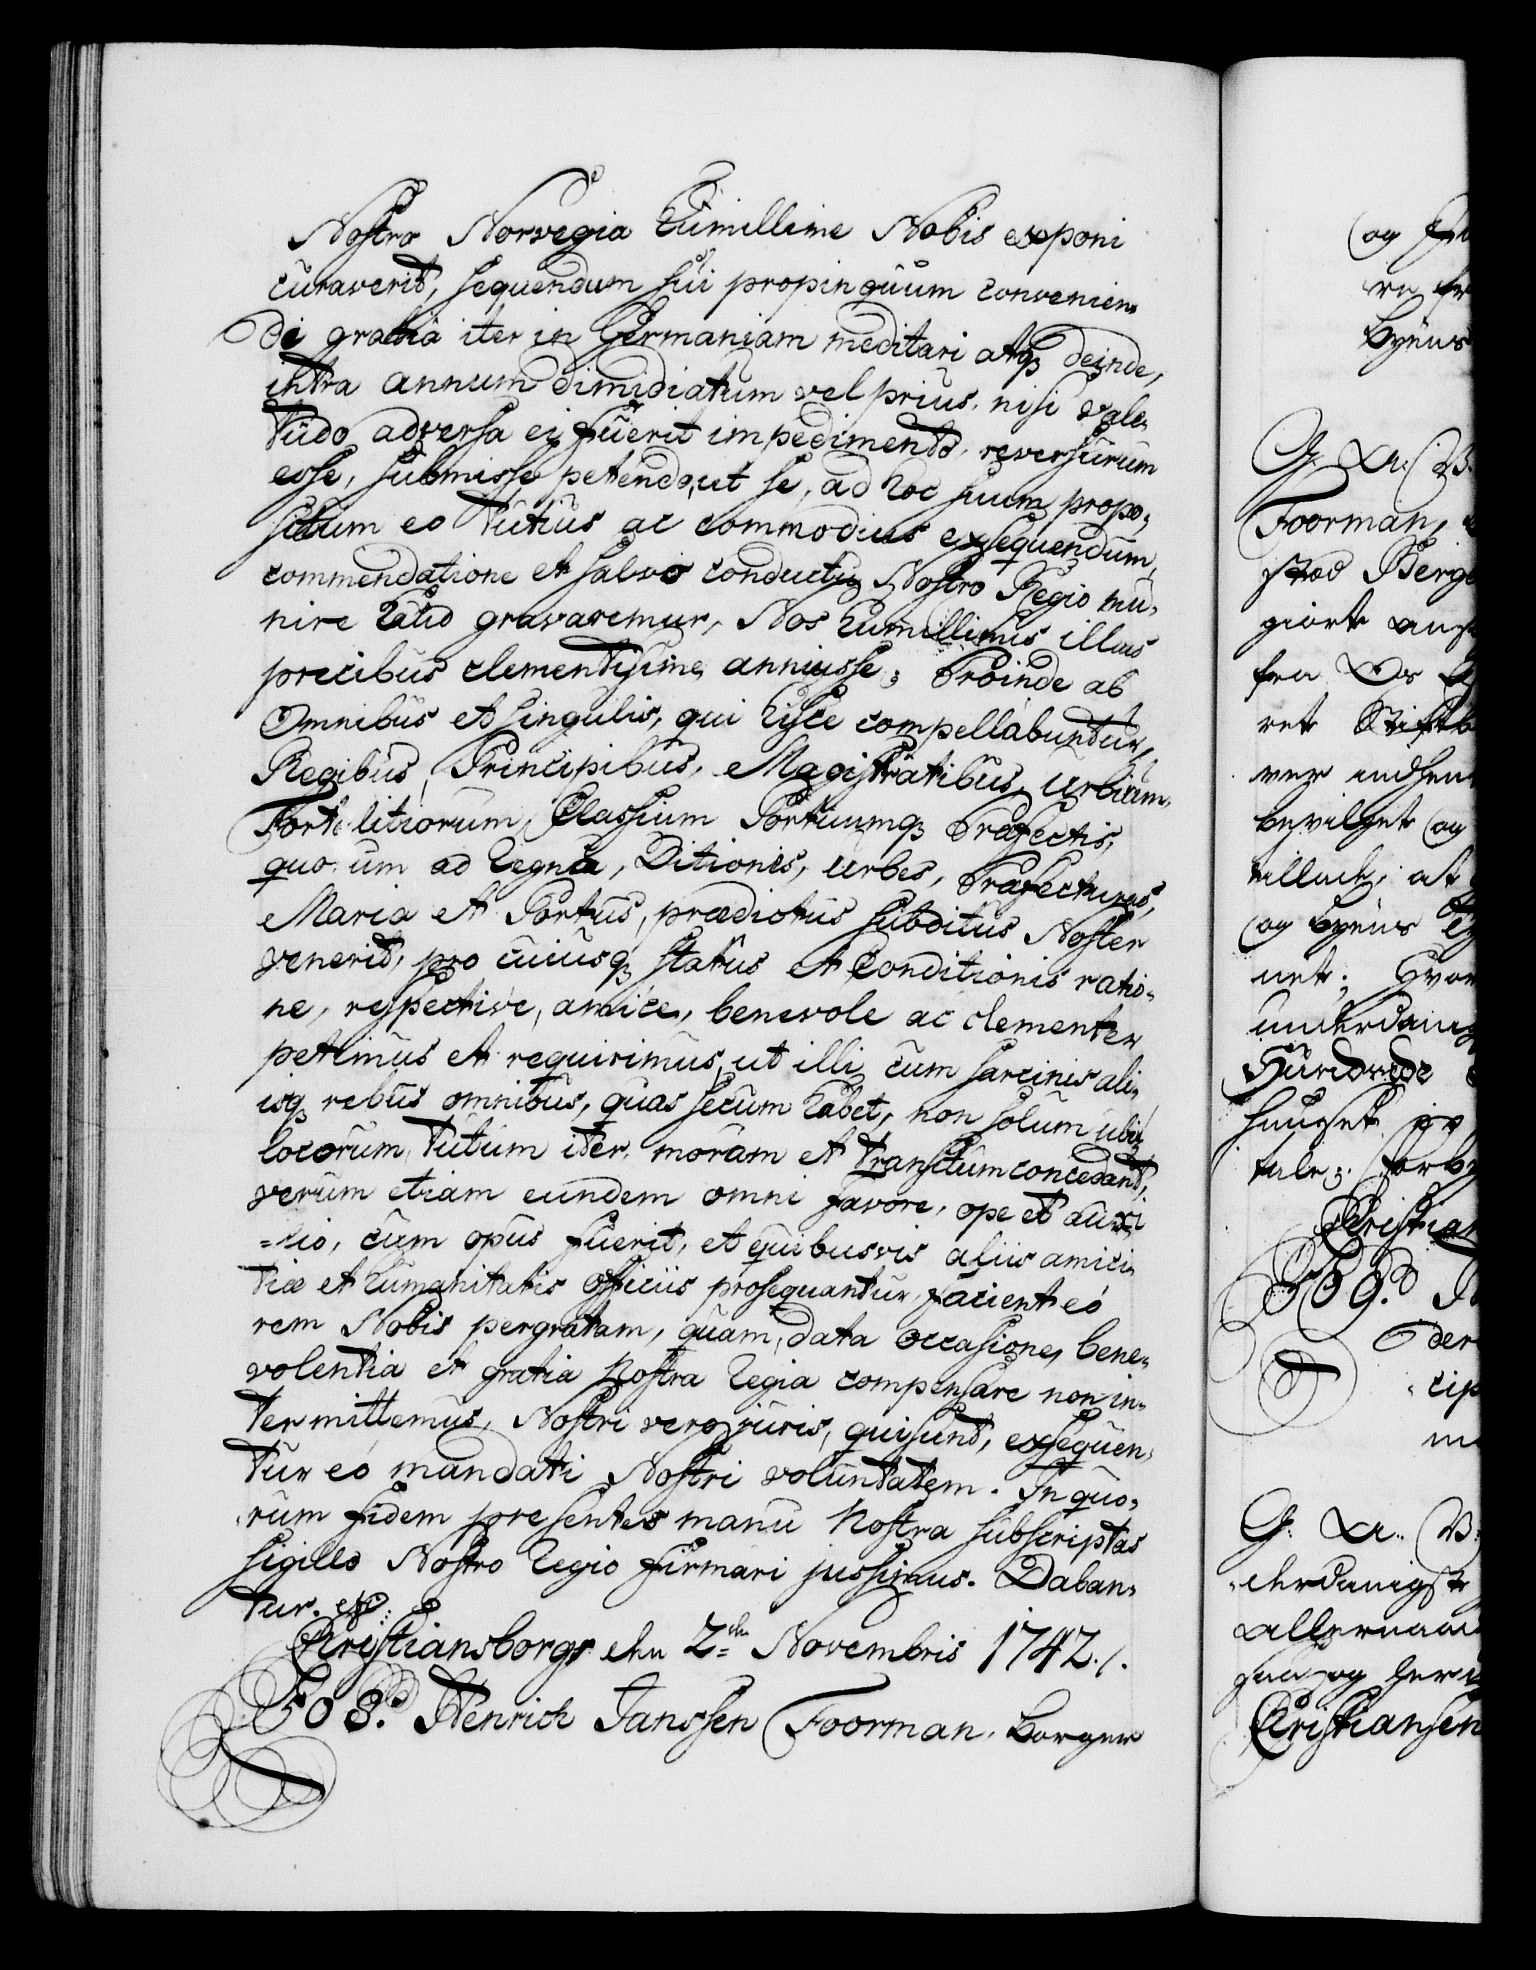 Nostra Norvegia humillime Nobis exponi
curaverit, sequendum sui propinquum convenien-
di gratia iter in Germaniam meditari atq; deinde,
intra annum dimidiatum vel prius, nisi vale-
tudo adversa ei fuerit impedimento, reversurum
esse, submisse petendo, ut se, ad hoc suum propo-
situm eo tutius ac commodius exsequendum,
commendatione et salvo conductu Nostro Regio mu-
nire haud gravaremur, Nos humillimis illius
precibus clementissime annuisse; Proinde ab
Omnibus et singulis, qui hisce compellabuntur,
Regibus, Principibus, Magistratibus, Urbium,
Fortalitiorum, Classium Portuumq; Præfectis,
quorum ad regna, Ditiones, urbes, Præfecturas,
Maria et Portus, prædictus subditus Noster
venerit, pro cuiusq; status et Conditionis ratio-
ne, respective, amice, benevole ac clementer
petimus et requirimus, ut illi cum sarcinis ali-
isq; rebus omnibus, quas secum habet, non solum ubi-
locorum, tutum iter, moram et transitum concedant,
verum etiam eundem omni favore, ope et auxi
-lio, cum opus fuerit, et quibusvis aliis amici-
tiæ et humanitatis officiis prosequantur, facient eo
rem Nobis pergratam, quam, data occasione, bene-
volentia et gratia Nostra Regia compensare non in-
termittemus, Nostri vero juris, qui sunt, exsequen-
tur eo mandati Nostri voluntatem. In quo-
rum fidem præsentes manu Nostra subscriptas
sigillo Nostro Regio firmari jussimus. Daban-
tur. etc:
Christiansborg den 2den Novembris 1742./.
508. Henrich Janssen Foorman, Borger
(og
Byens
G: A: V:
Foorman,
stad Berge
giort
fra Os
ret Stiftb
bevilget (og
tillade, at
(og Byens
net; Hvor
underdanig
Hundrede
tale;. Forby
Christian
509.
der
cip
G: A: V:
allernaad
Christiansen